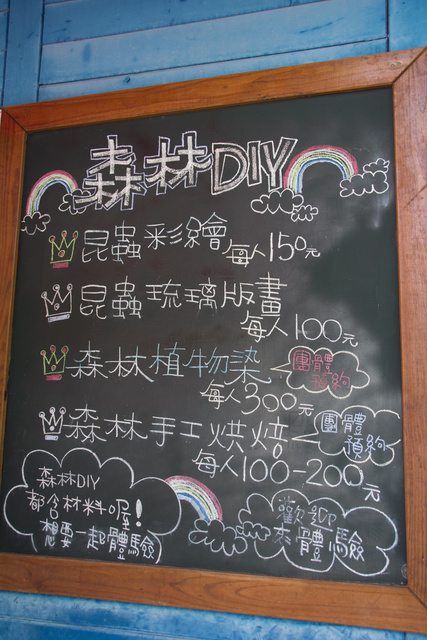 森林DIY
昆蟲彩繪 每人150元
昆蟲琉璃版畫
每人100元
森林植物染 團體
預約
每人300元
森林手工烘焙 團體
預約
每人100-200元
森林DIY
都含材料喔!
想要一起體驗
歡迎
來體驗